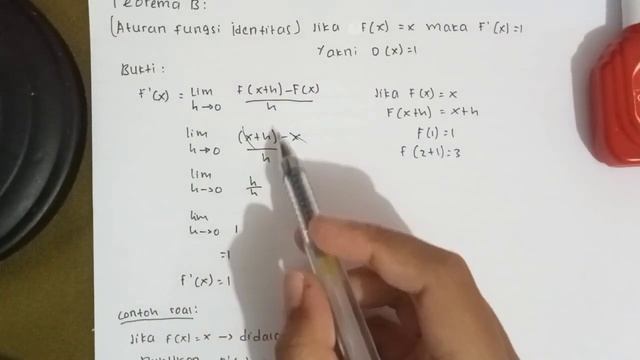 Teorema B:
(Aturan fungsi identitas) Jika F(x) = x maka F'(x) = 1
Yakni D(x) = 1
Bukti :
F'(x) = lim h→0 F(x+h) - F(x) / h
lim h→0 (x+h) - x / h
lim h→0 h/h
lim h→0 1
= 1
F'(x) = 1
Jika F(x) = x
F(x+h) = x+h
F(1) = 1
F(2+1) = 3
contoh soal:
Jika F(x) = x →